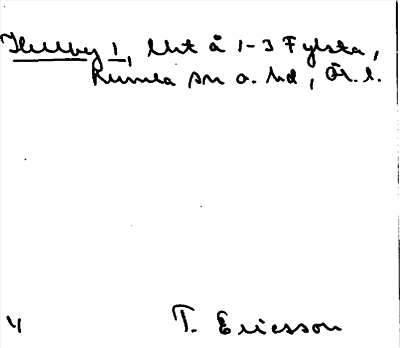 Hulby 1, Utt å 1-3 Fylsta,
Kumla sn o. hd, Ör. l.
4 T. Ericsson